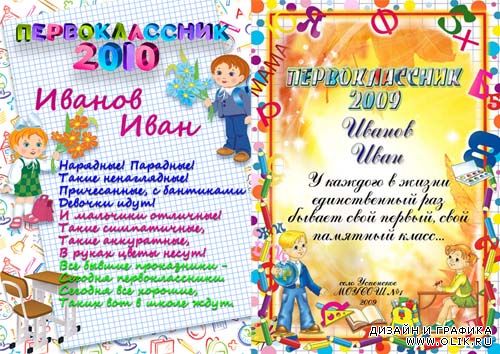 ПЕРВОКЛАССНИК
2010
Иванов
Иван
Нарядные! Парадные!
Такие ненаглядные!
Причесанные, с бантиками
Девочки идут!
И мальчики отличные!
Такие симпатичные,
Такие аккуратные,
В руках цветы несут!
Все бывшие проказники -
Сегодня первоклассники
Сегодня все хорошие,
Таких вот в школе ждут.
МАМА
ПЕРВОКЛАССНИК
2009
Иванов
Иван
У каждого в жизни
единственный раз
бывает свой первый, свой
памятный класс...
село Успенское
МОУСОШ №1
2009
ДИЗАЙН И ГРАФИКА
WWW.0LIK.RU